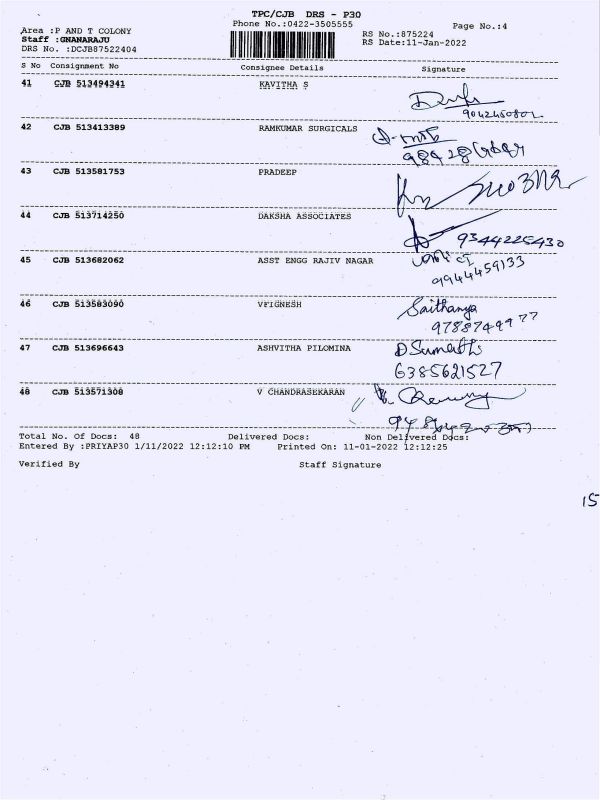 TPC/CJB DRS - P30
Phone No.:0422-3505555
Page No.:4
Area :P AND T COLONY
Staff :GNANARAJU
DRS No. :DCJB87522404
RS No.:875224
RS Date:11-Jan-2022
S No Consignment No Consignee Details Signature
41 CJB 513494341 KAVITHA S
9042450802
42 CJB 513413389 RAMKUMAR SURGICALS
43 CJB 513581753 PRADEEP
44 CJB 513714250 DAKSHA ASSOCIATES
9344225430
45 CJB 513682062 ASST ENGG RAJIV NAGAR
9944459133
46 CJB 513583090 VFIGNESH
Saithanya
9788749977
47 CJB 513696643 ASHVITHA PILOMINA
D Sumathi
6385621527
48 CJB 513571308 V CHANDRASEKARAN
Total No. Of Docs: 48 Delivered Docs: Non Delivered Docs:
Entered By :PRIYAP30 1/11/2022 12:12:10 PM Printed On: 11-01-2022 12:12:25
Verified By Staff Signature
15